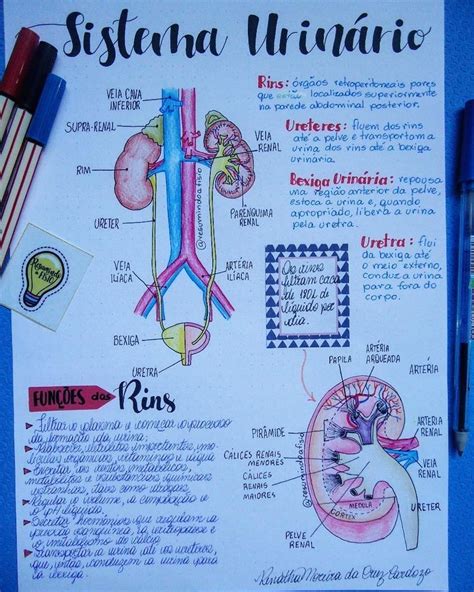 Sistema Urinário
Rins: órgãos retroperitoneais pares
que estão localizados superiormente
na parede abdominal posterior.
Ureteres: fluem dos rins
até a pelve e transportam a
urina dos rins até a bexiga
urinária.
Bexiga Urinária: repousa
na região anterior da pelve,
estoca a urina e, quando
apropriado, libera a urina
pela uretra.
Uretra: flui
da bexiga até
o meio externo,
conduz a urina
para fora do
corpo.
VEIA CAVA
INFERIOR
SUPRA-RENAL
RIM
URETER
VEIA
ILÍACA
BEXIGA
URETRA
VEIA
RENAL
PARÊNQUIMA
RENAL
ARTÉRIA
ILÍACA
@resumindoafisio
Resumindo
a FISIO
Os rins
filtram cerca
de 180L de
líquido por
dia.
FUNÇÕES dos Rins
Filtrar o plasma e começa o processo
da formação da urina;
Reabsorver importantes,
orgânicas, e água
Excretar
metabólitos e substâncias químicas
estranhas, tais como drogas.
Regular o volume, a composição e
o pH líquido.
Secretar hormônios que regulam a
pressão sanguínea, a
e o metabolismo do cálcio.
Transportar a urina até os ureteres,
que, então, conduzem a urina para
a bexiga.
PAPILA
ARTÉRIA
ARQUEADA
ARTÉRIA
PIRÂMIDE
CÁLICES RENAIS
MENORES
CÁLICES
RENAIS
MAIORES
PELVE
RENAL
CÓRTEX
MEDULA
ARTERIA
RENAL
VEIA
RENAL
URETER
@resumindoafisio
Moreira da Cruz Cardozo